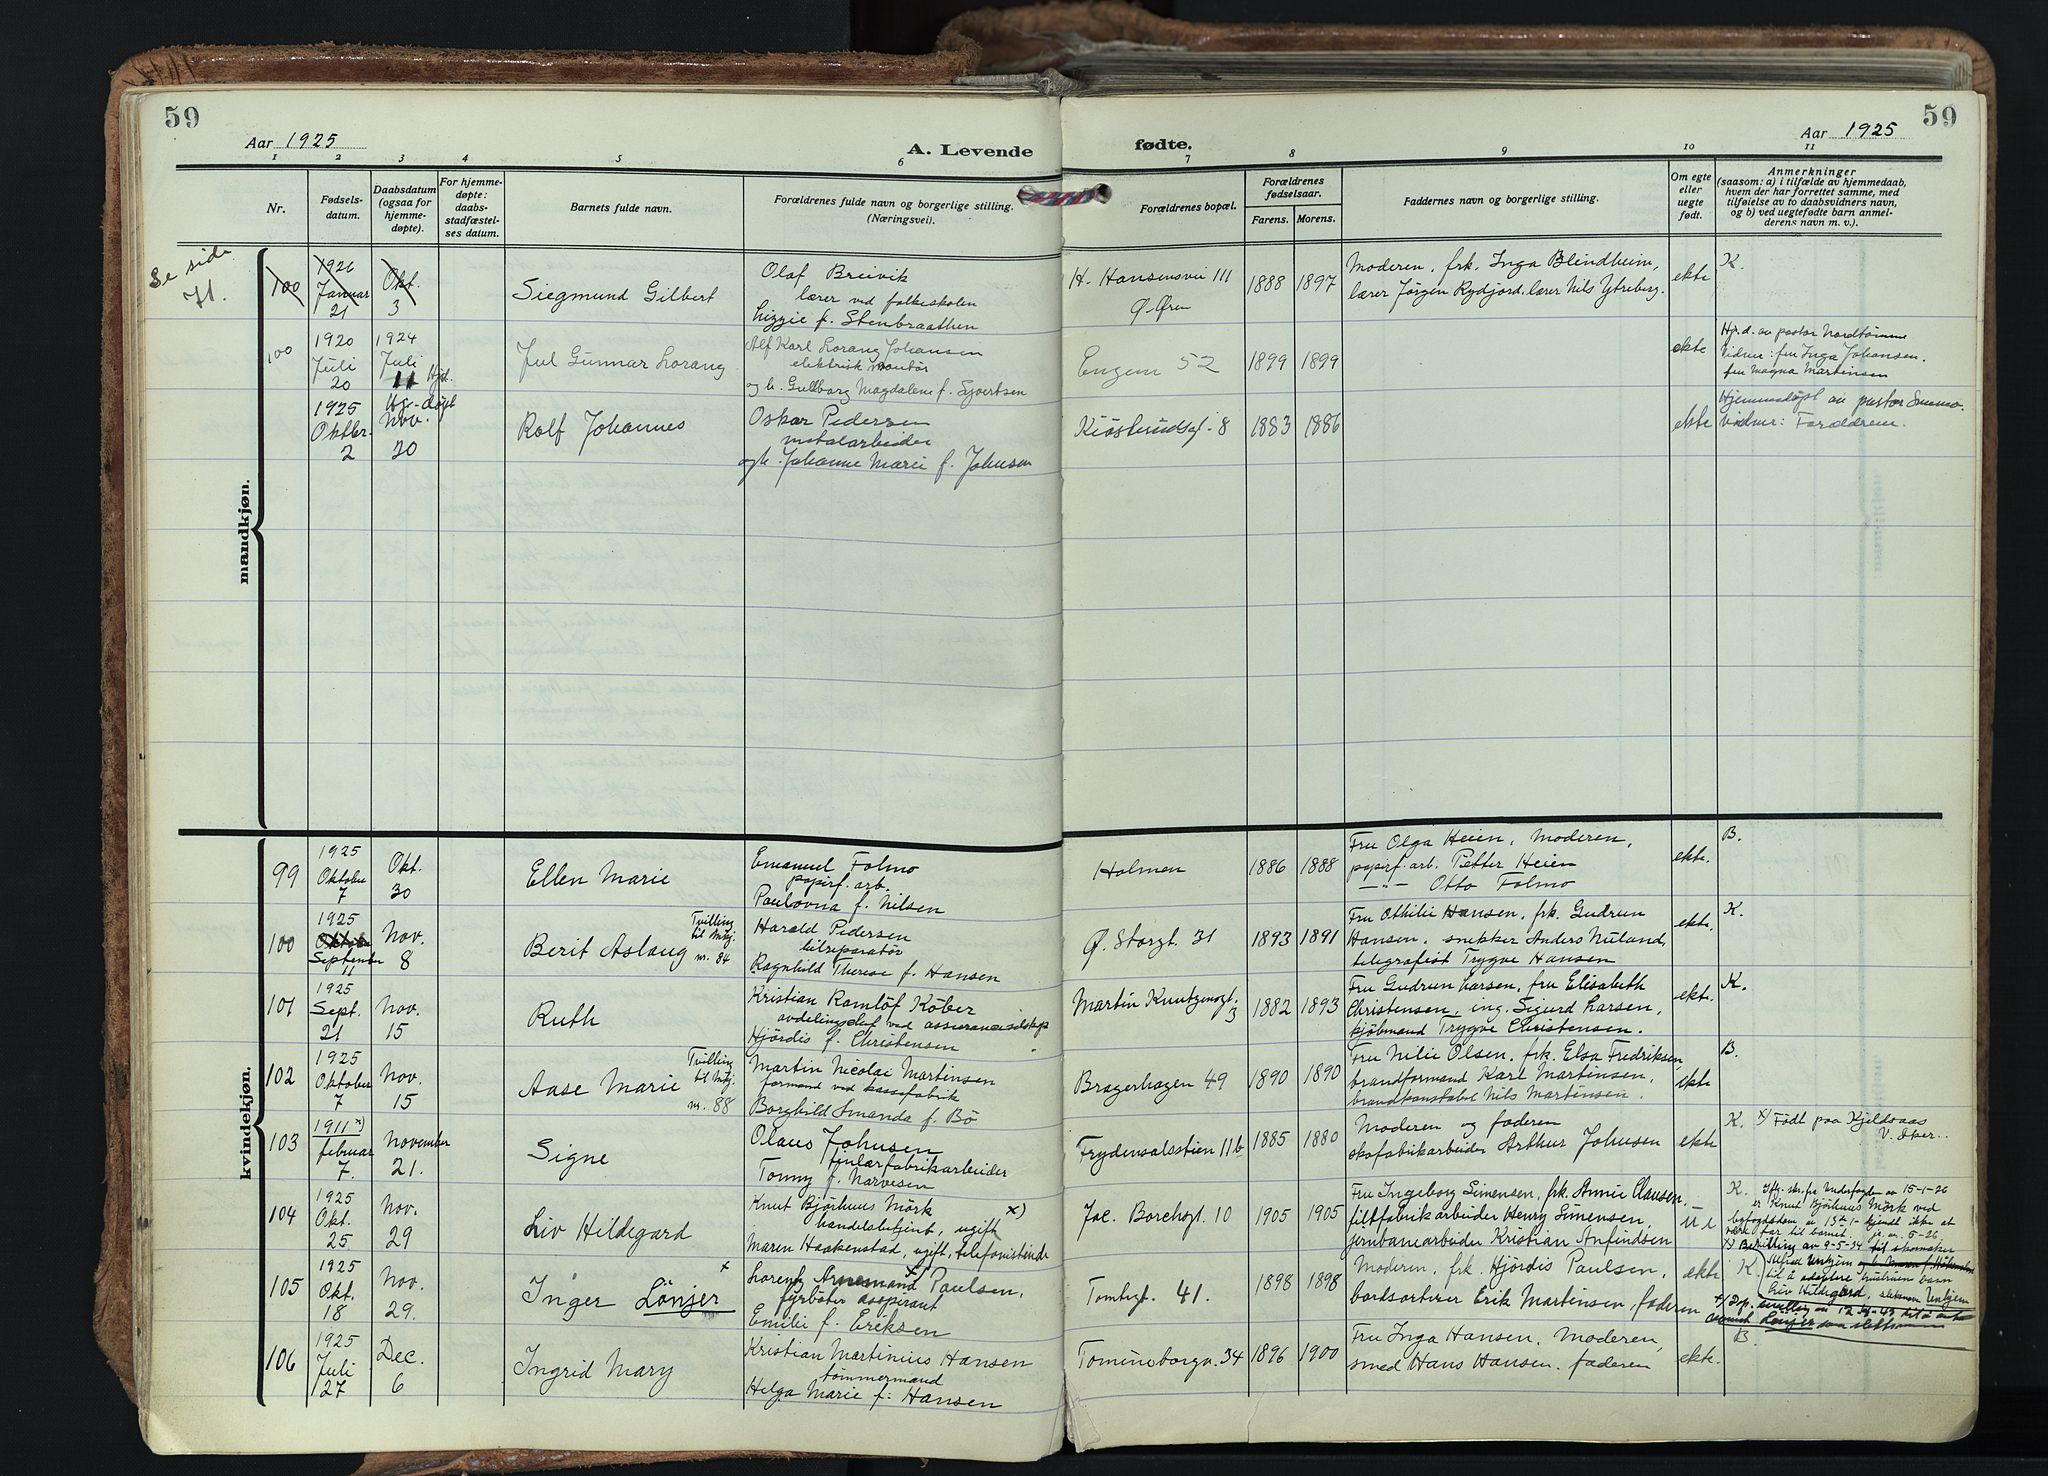 59
59
Aar 1925
A. Levende
fødte.
Aar 1925
1 2 3 4 5 6 7 8 9 10 11
Nr.
Fødsels-
datum.
Daabsdatum
(ogsaa for
hjemme-
døpte).
For hjemme-
døpte:
daabs-
stadfæstel-
ses datum.
Barnets fulde navn.
Forældrenes fulde navn og borgerlige stilling.
(Næringsvei).
Forældrenes bopæl.
Forældrenes
fødselsaar.
Farens. Morens.
Faddernes navn og borgerlige stilling.
Om egte
eller
uegte
født.
Anmerkninger
(saasom: a) i tilfælde av hjemmedaab,
hvem der har forrettet samme, med
tilføielse av to daabsvidners navn,
og b) ved uegtefødte barn anmel-
derens navn m. v.).
mandkjøn.
Se side
71.
100
1926
Januar
21
Okt.
3
Siegmund Gilbert
Olaf Breivik
lærer ved folkeskolen
Lizzie f. Stenbraathen
H. Hansensvei 111
Ø. Øren
1888 1897
Moderen, frk. Inga Blindheim,
lærer Jørgen Rydjord, lærer Nils Ytreberg.
ekte
K.
100
1920
Juli
20
1924
Juli
11 Hjd.
Jul Gunnar Lorang
Alf Karl Lorang Johansen
elektrisk montør
og h. Gullborg Magdalene f. Sjvertsen
Engene 52
1899 1899
ekte
Hj. d. av pastor Nordtømme
Vidner: fru Inga Johansen.
fru Magna Martinsen
1925
Oktbr.
2
Hj.-døpt
Nov.
20
Rolf Johannes
Oskar Pedersen
metalarbeider
og h. Johanne Marie f. Johnsen
Kiøsterudsgt. 8
1883 1886
ekte
Hjemmedøpt av pastor
vidner: Forældrene.
kvindekjøn.
99
1925
Oktober
7
Okt.
30
Ellen Marie
Emanuel Folmo
papirf. arb.
Paulovna f. Nilsen
Holmen
1886 1888
Fru Olga Heien, Moderen,
papirf. arb. Petter Heien
—"— Otto Folmo
ekte.
B.
100
1925
Oktober
September
11
Nov.
8
Berit Aslaug
Tvilling
til Mkj.
nr. 84
Harald Pedersen
bilreparatør
Ragnhild Therese f. Hansen
Ø. Storgt. 31
1893 1891
Fru Othilie Hansen, frk. Gudrun
Hansen, snekker Anders Nuland,
telegrafist Trygve Hansen
ekte.
K.
101
1925
Sept.
21
Nov.
15
Ruth
Kristian Romløf Køber
avdelingschef ved assuranceselskap
Hjørdis f. Christensen
Martin Knutzensgt.
3
1882 1893
Fru Gudrun Larsen, fru Elisabeth
Christensen, ing. Sigurd Larsen,
kjøbmand Trygve Christensen.
ekte.
K.
102
1925
Oktober
7
Nov.
15
Aase Marie
Tvilling
til Mkj.
nr. 88
Martin Nicolai Martinsen
formand ved kassefabrik
Borghild Amanda f. Bö
Bragerhagen 49
1890 1890
Fru Nilie Olsen, frk. Elsa Fredriksen,
brandformand Karl Martinsen,
brandkonstabel Nils Martinsen.
ekte
B.
103
1911 x)
februar
7.
November
21.
Signe
Olaus Johnsen
finlærfabrikarbeider
Tonny f. Narvesen
Frydendalsstien 11b
1885 1880
Moderen og faderen
skofabrikarbeider Arthur Johnsen
ekte
K. x) Født paa Kjeldsaas
V. Aker..
104
1925
Okt.
25
Nov.
29
Liv Hildegard
Knut Bjørhuus Mörk x)
handelsbetjent, ugift
Maren Haakenstad, ugift, telefonistinde
Jac. Borchsgt. 10
1905 1905
Fru Ingeborg Simensen, frk. Annie Clausen,
filtfabrikarbeider Henry Simensen,
jernbanearbeider Kristian Anfindsen
U e
K. Iflg. skr. fra Underfogden av 15-1-26
er Knut Bjørhuus Mörk ved
byfogddom av 13de 1- kjendt ikke at
være far til barnet. jr. nr. 5-26.
x) Bevilling av 9-5-34 til skomaker
Alfred Unhjem
til å adoptere hustruens barn
Liv Hildegard, slektsnavn Unhjem
105
1925
Okt.
18
Nov.
29.
Inger Lönjer x
Lorentz Arnemand Paulsen, x)
fyrbøter aspirant
Emilie f. Eriksen
Tomtegt. 41.
1898 1898
Moderen, frk. Hjördis Paulsen,
bordsorterer Erik Martinsen, faderen
ekte
K
106
1925
Juli
27
Dec.
6
Ingrid Mary
Kristian Martinius Hansen
tømmermand
Helga Marie f. Hansen
Tomineborgv. 34
1896 1900
Fru Inga Hansen, Moderen,
smed Hans Hansen, faderen
ekte.
B.